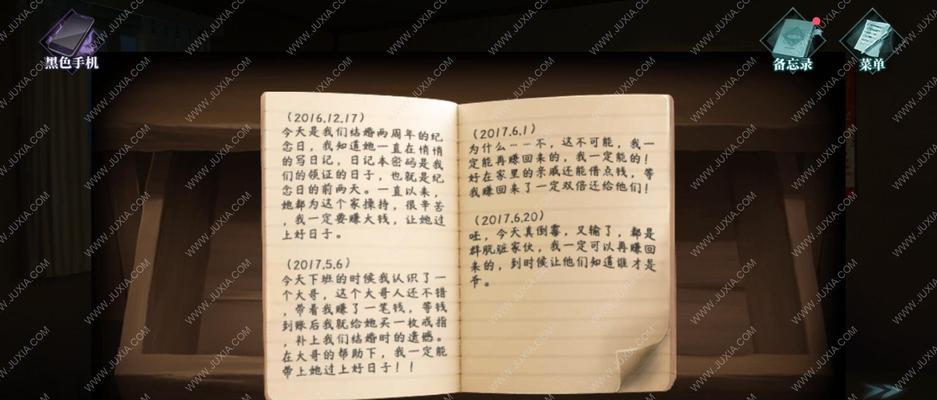 黑色手机
备忘录
菜单
(2016.12.17)
今天是我们结婚两周年的纪
念日，我知道她一直在悄悄
的写日记，日记本密码是我
们的领证的日子，也就是纪
念日的前两天。一直以来，
她都为这个家操持，很辛苦
，我一定要赚大钱，让她过
上好日子。
(2017.5.6)
今天下班的时候我认识了一
个大哥，这个大哥人还不错
，带着我赚了一笔钱，等钱
到账后我就给她买一枚戒指
，补上我们结婚时的遗憾。
在大哥的帮助下，我一定能
带上她过上好日子！！
(2017.6.1)
为什么……不，这不可能，我一
定能再赚回来的，我一定能的！
好在家里的亲戚还能借点钱，等
我赚回来了一定双倍还给他们！
(2017.6.20)
呸，今天真倒霉，又输了，都是
群肮脏家伙，我一定可以再赚回
来的，到时候让他们知道谁才是
爷。
WWW.JUXIA.COM